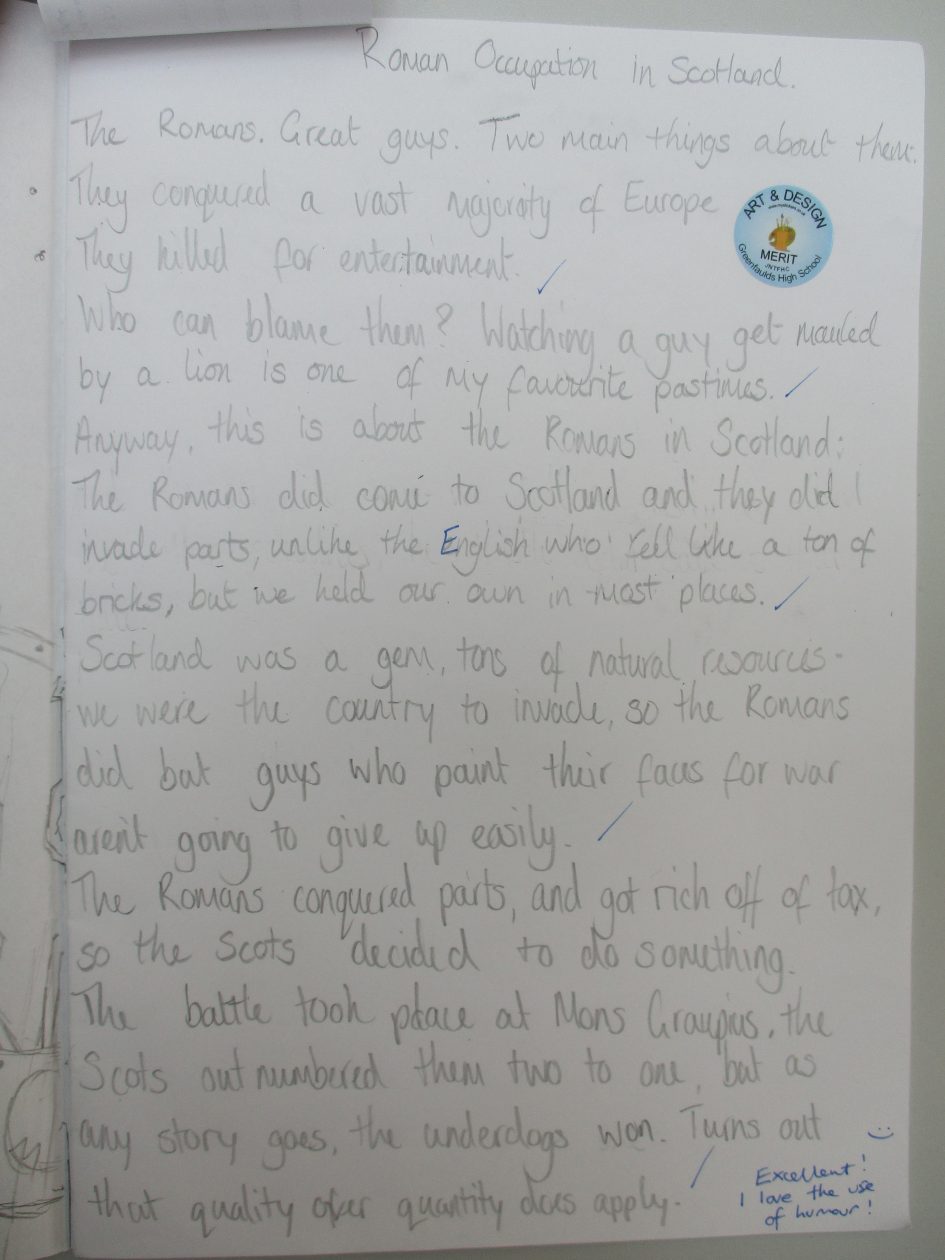 Roman Occupation in Scotland.
The Romans. Great guys. Two main things about them:
They conquered a vast majority of Europe
They killed for entertainment.
ART & DESIGN
MERIT
Greenfaulds High School
Who can blame them? Watching a guy get mauled
by a lion is one of my favourite pastimes.
Anyway, this is about the Romans in Scotland:
The Romans did come to Scotland and they did
invade parts, unlike the English who fell like a ton of
bricks, but we held our own in most places.
Scotland was a gem, tons of natural resources -
we were the country to invade, so the Romans
did but guys who paint their faces for war
aren't going to give up easily.
The Romans conquered parts, and got rich off of tax,
so the Scots decided to do something.
The battle took place at Mons Graupius, the
Scots outnumbered them two to one, but as
any story goes, the underdogs won. Turns out
that quality over quantity does apply.
Excellent!
I love the use
of humour!